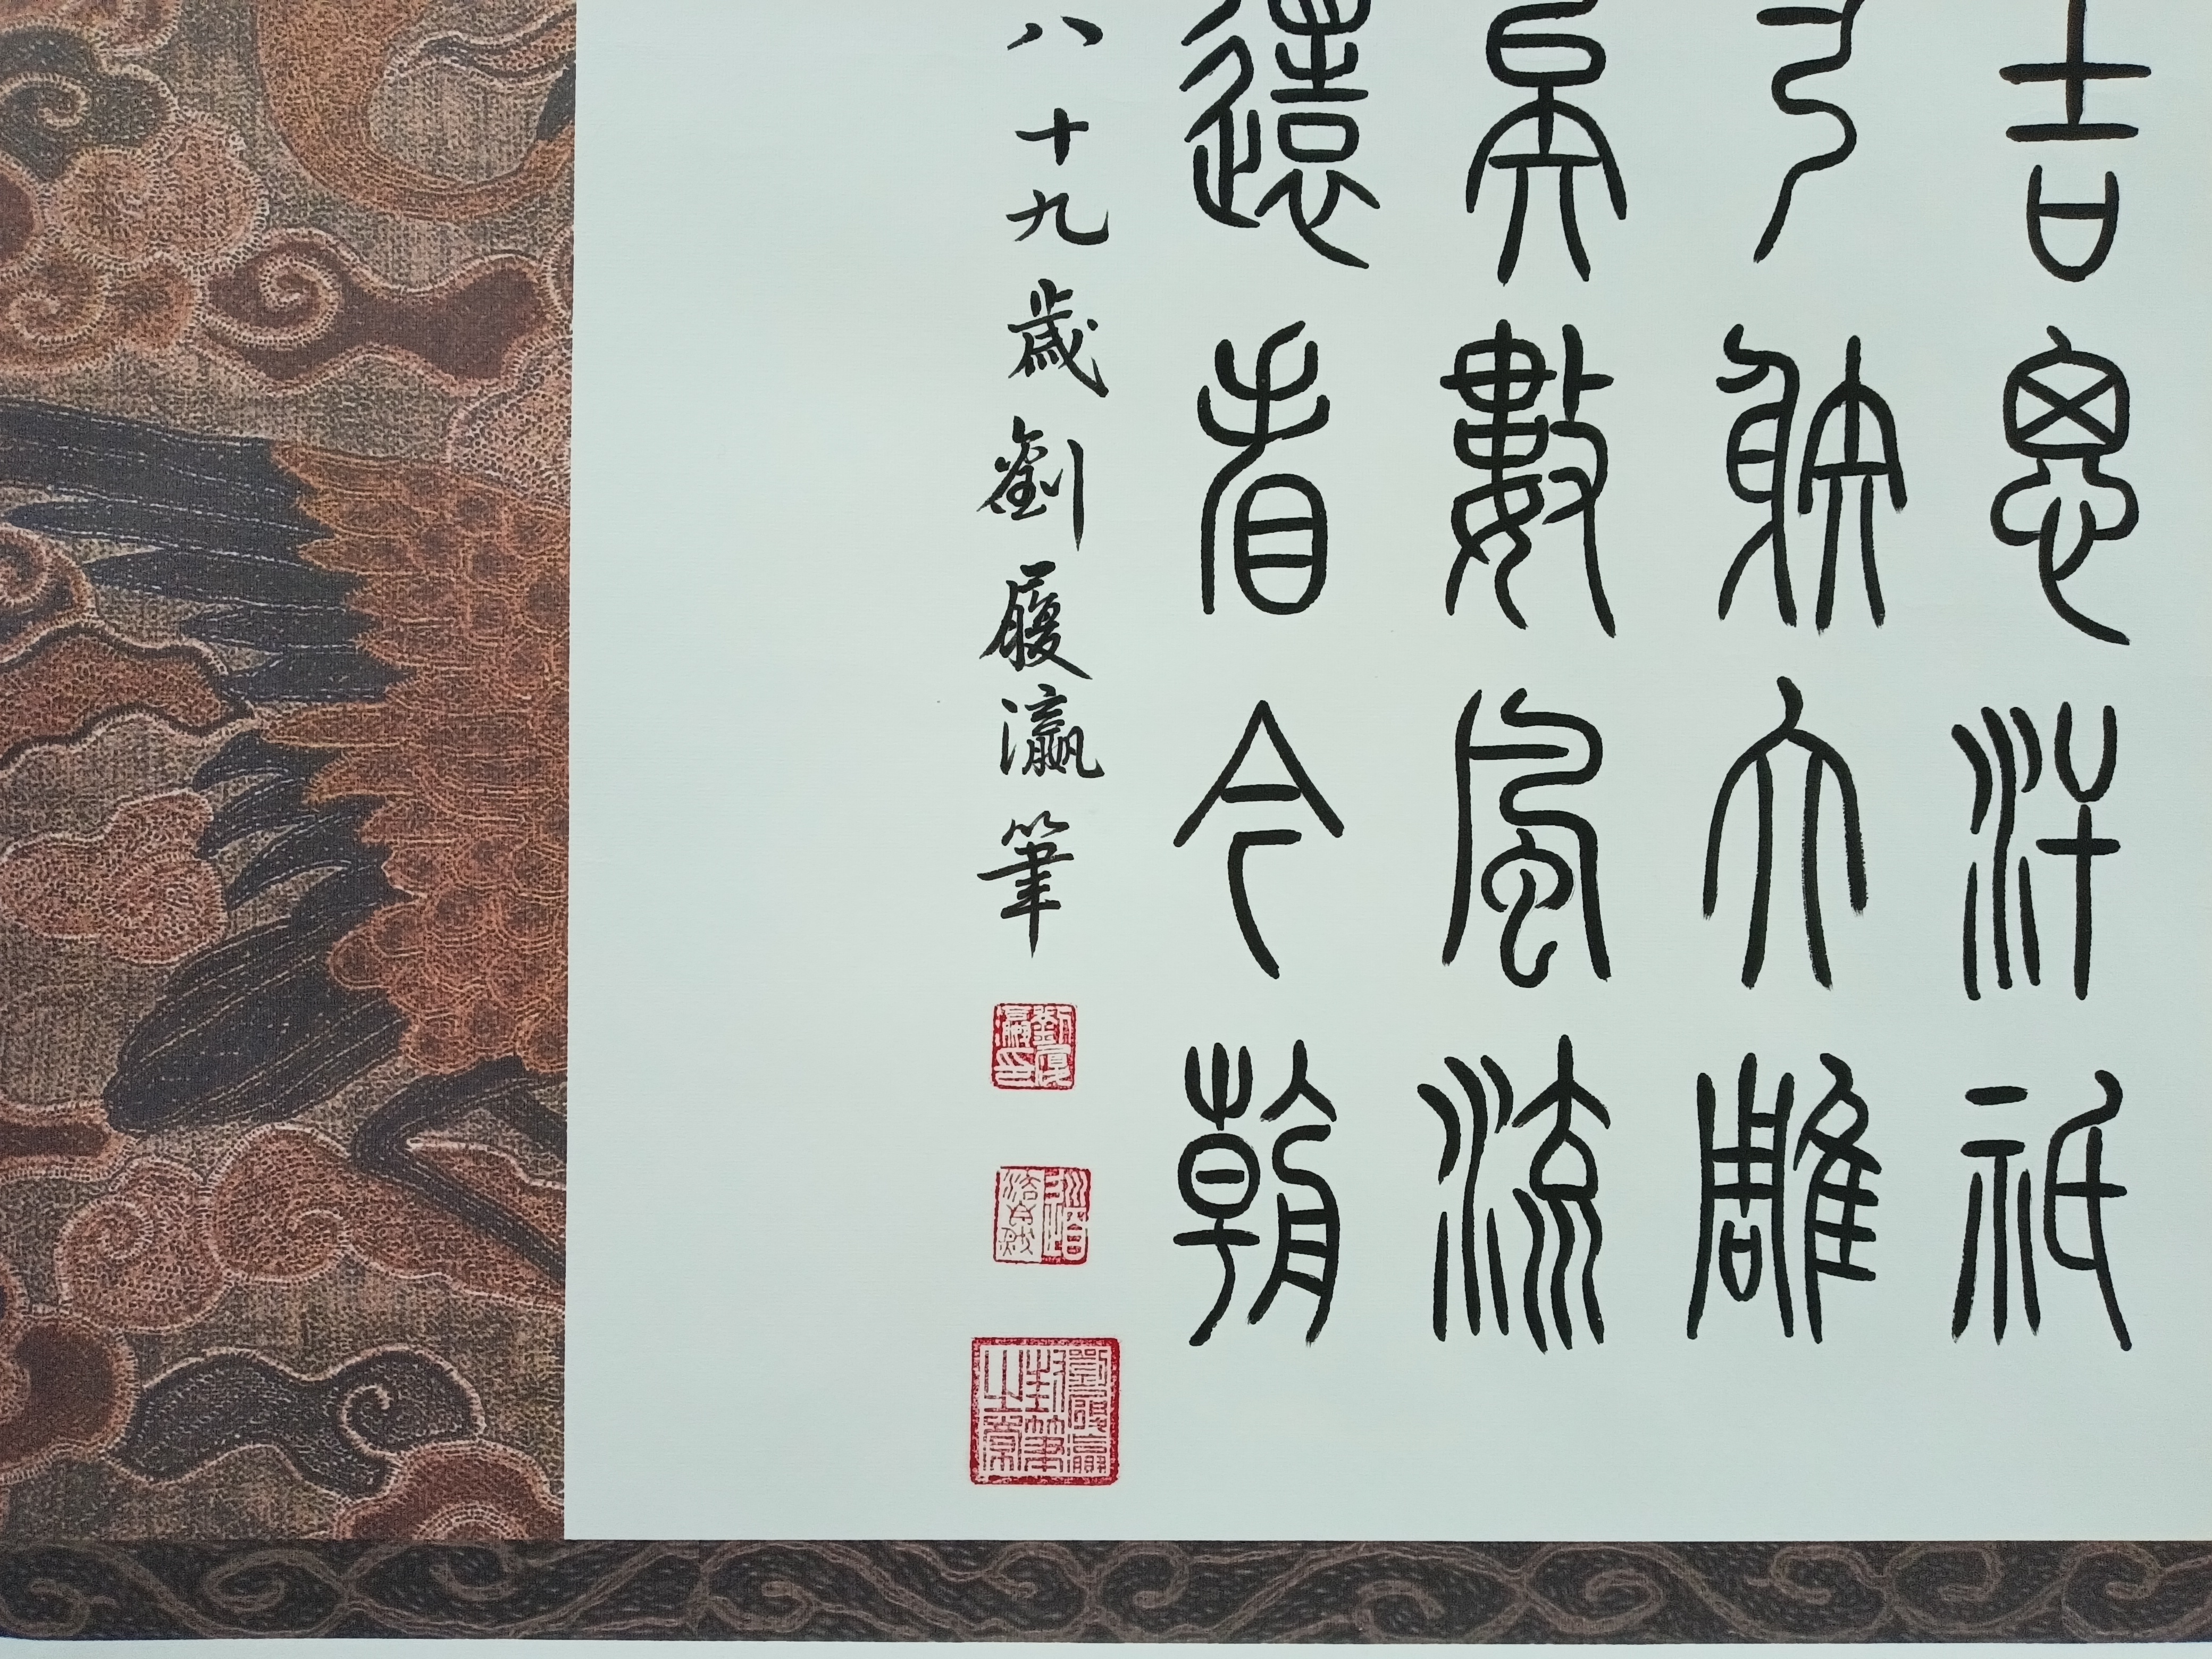 吉思汗祇
弓射大雕
矣數風流
還看今朝
八十九歲劉履瀛筆
劉履瀛印